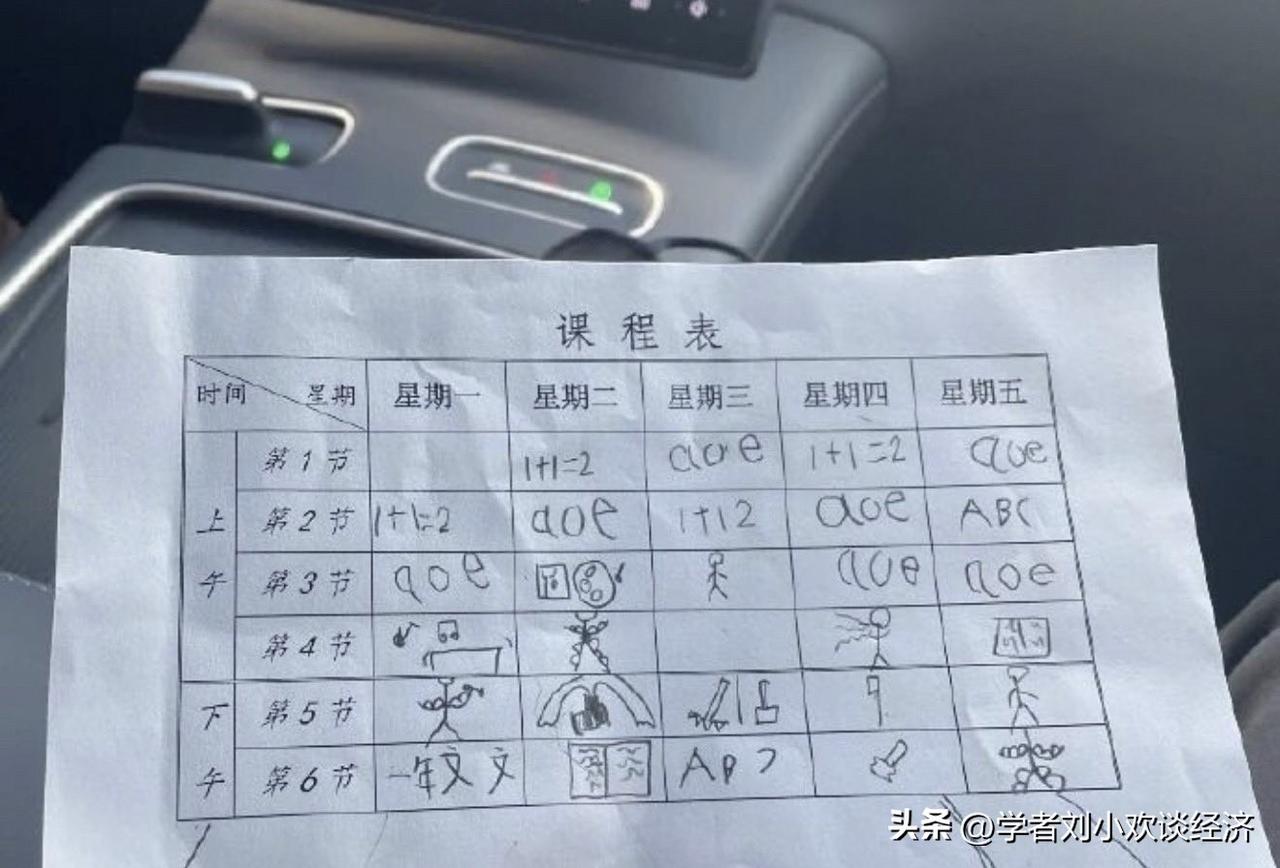 课程表
时间 星期 星期一 星期二 星期三 星期四 星期五
上午 第1节 1+1=2 aoe 1+1=2 aoe
第2节 1+1=2 aoe 1+12 aoe ABC
第3节 aoe aoe aoe
第4节
下午 第5节
第6节 一年文文
头条 @学者刘小欢谈经济